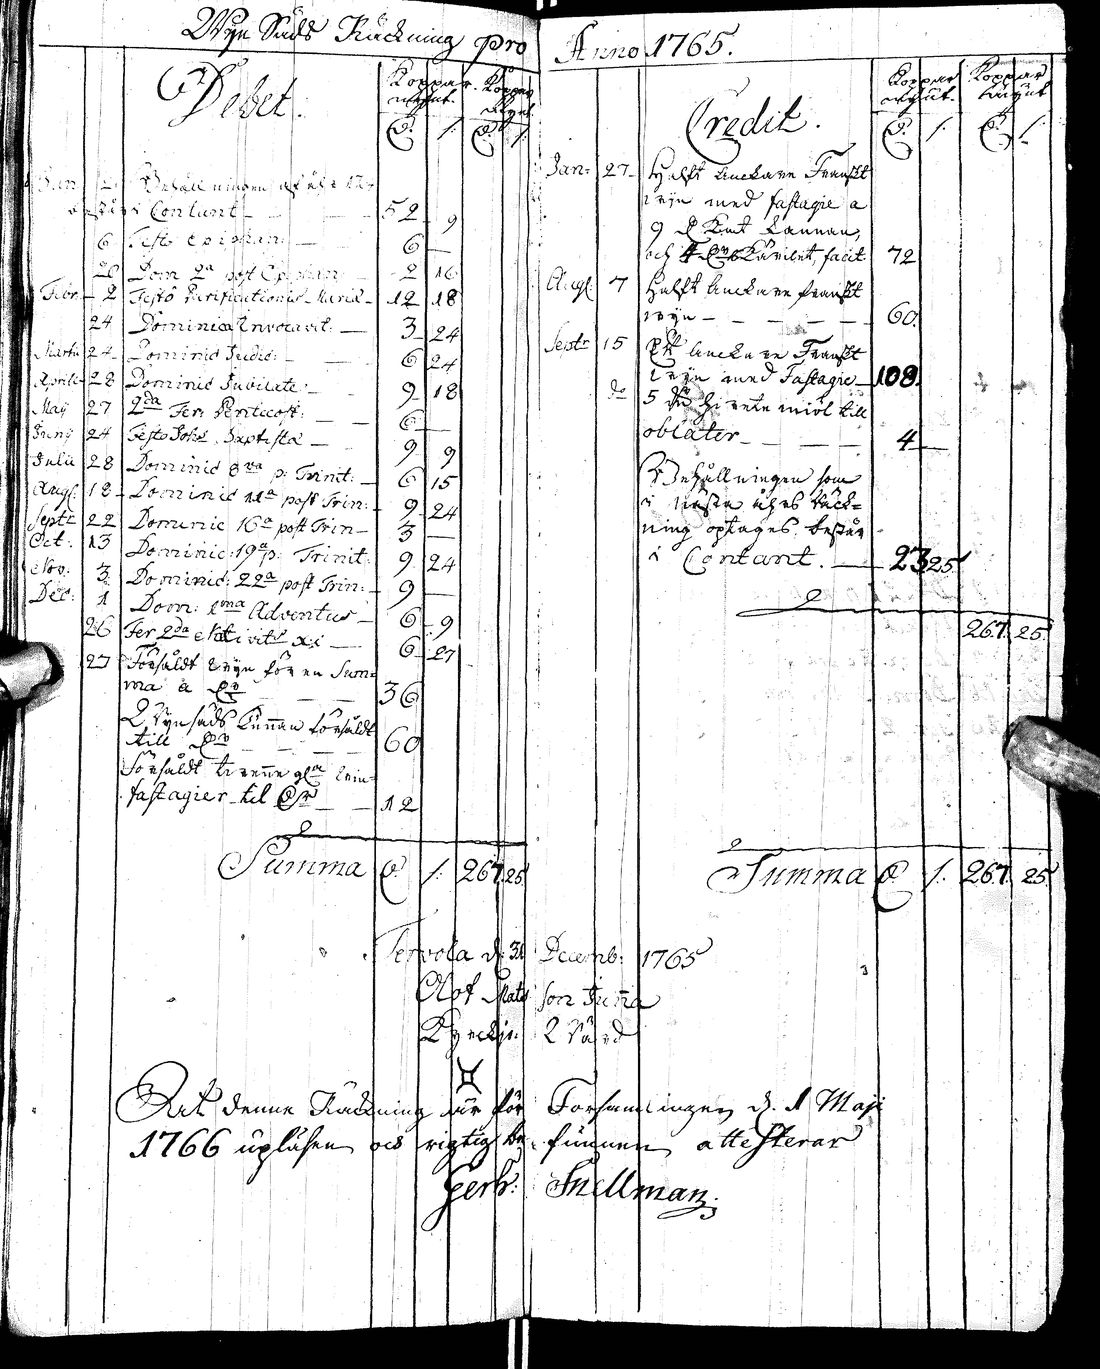 Wyn Säds Räckning pro Anno 1765.
Debet.
Koppar mynt. Koppar mynt.
Jan: Behållningen af åhr
Contant — 52 9
6 Festo Epiphan: — 6 —
20 Dom 2a post Epiphan 2 16
Febr. 2 Festo Purificationis Mariæ — 12 18
24 Dominica Invocavit. — 3 24
Martii 24 Dominic Judic: — 6 24
Aprilis 28 Dominic Jubilate: — 9 18
Maij 27 2da Fer: Pentecost: — 6 —
Junij 24 Festo Joh: Baptistæ — 9 9
Julii 28 Dominic 8va p: Trinit: — 6 15
Aug: 18 Dominic 11a post Trin: — 9 24
Septr 22 Dominic 16a post Trin — 3 —
Oct: 13 Dominic: 19a p: Trinit: 9 24
Nov: 3 Dominic: 22a post Trin: — 9 —
Dec: 1 Dom: 1ma Adventus — 6 9
26 Fer 2da Nativit Xi — 6 27
27 Försåldt wyn för en Sum=
ma a — 36
Wynsäds Kannan försåldt
till — 60
Försåldt
fastagier til — 12
Summa 267 25
Credit.
Koppar mynt. Koppar mynt
Jan: 27 Halft Anckare Franskt
wyn med fastagie a
9 Kannan,
och facit 72
Aug: 7 Halft Anckare franskt
wyn — — — — 60.
Septr 15 Ett Anckare Franskt
wyn med Fastagie — 108.
do 5 hvete miöl till
oblater — — — 4 —
Behållningen som
i nästa åhrs Räck=
ning optages. består
i Contant. — 23 25
267. 25.
Summa 267. 25
Tervola d. 31 Decemb: 1765
Olof Mats son
Kyrckio Wärd
At denne Räckning är för Forsamlingen d. 1 Maji
1766 upläsen och rigtig be= funnen attesterar
Gerh: Snellman.